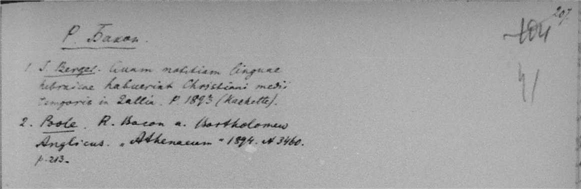 207
104
41
Р. Бакон.
1. S. Berger. Quam notitiam linguae
hebraicae habuerint Christiani medii
temporis in Gallia. P. 1893 (Hachette).
2. Poole. R. Bacon a. Bartholomew
Anglicus. „Athenaeum" 1894. N 3460.
p. 213.